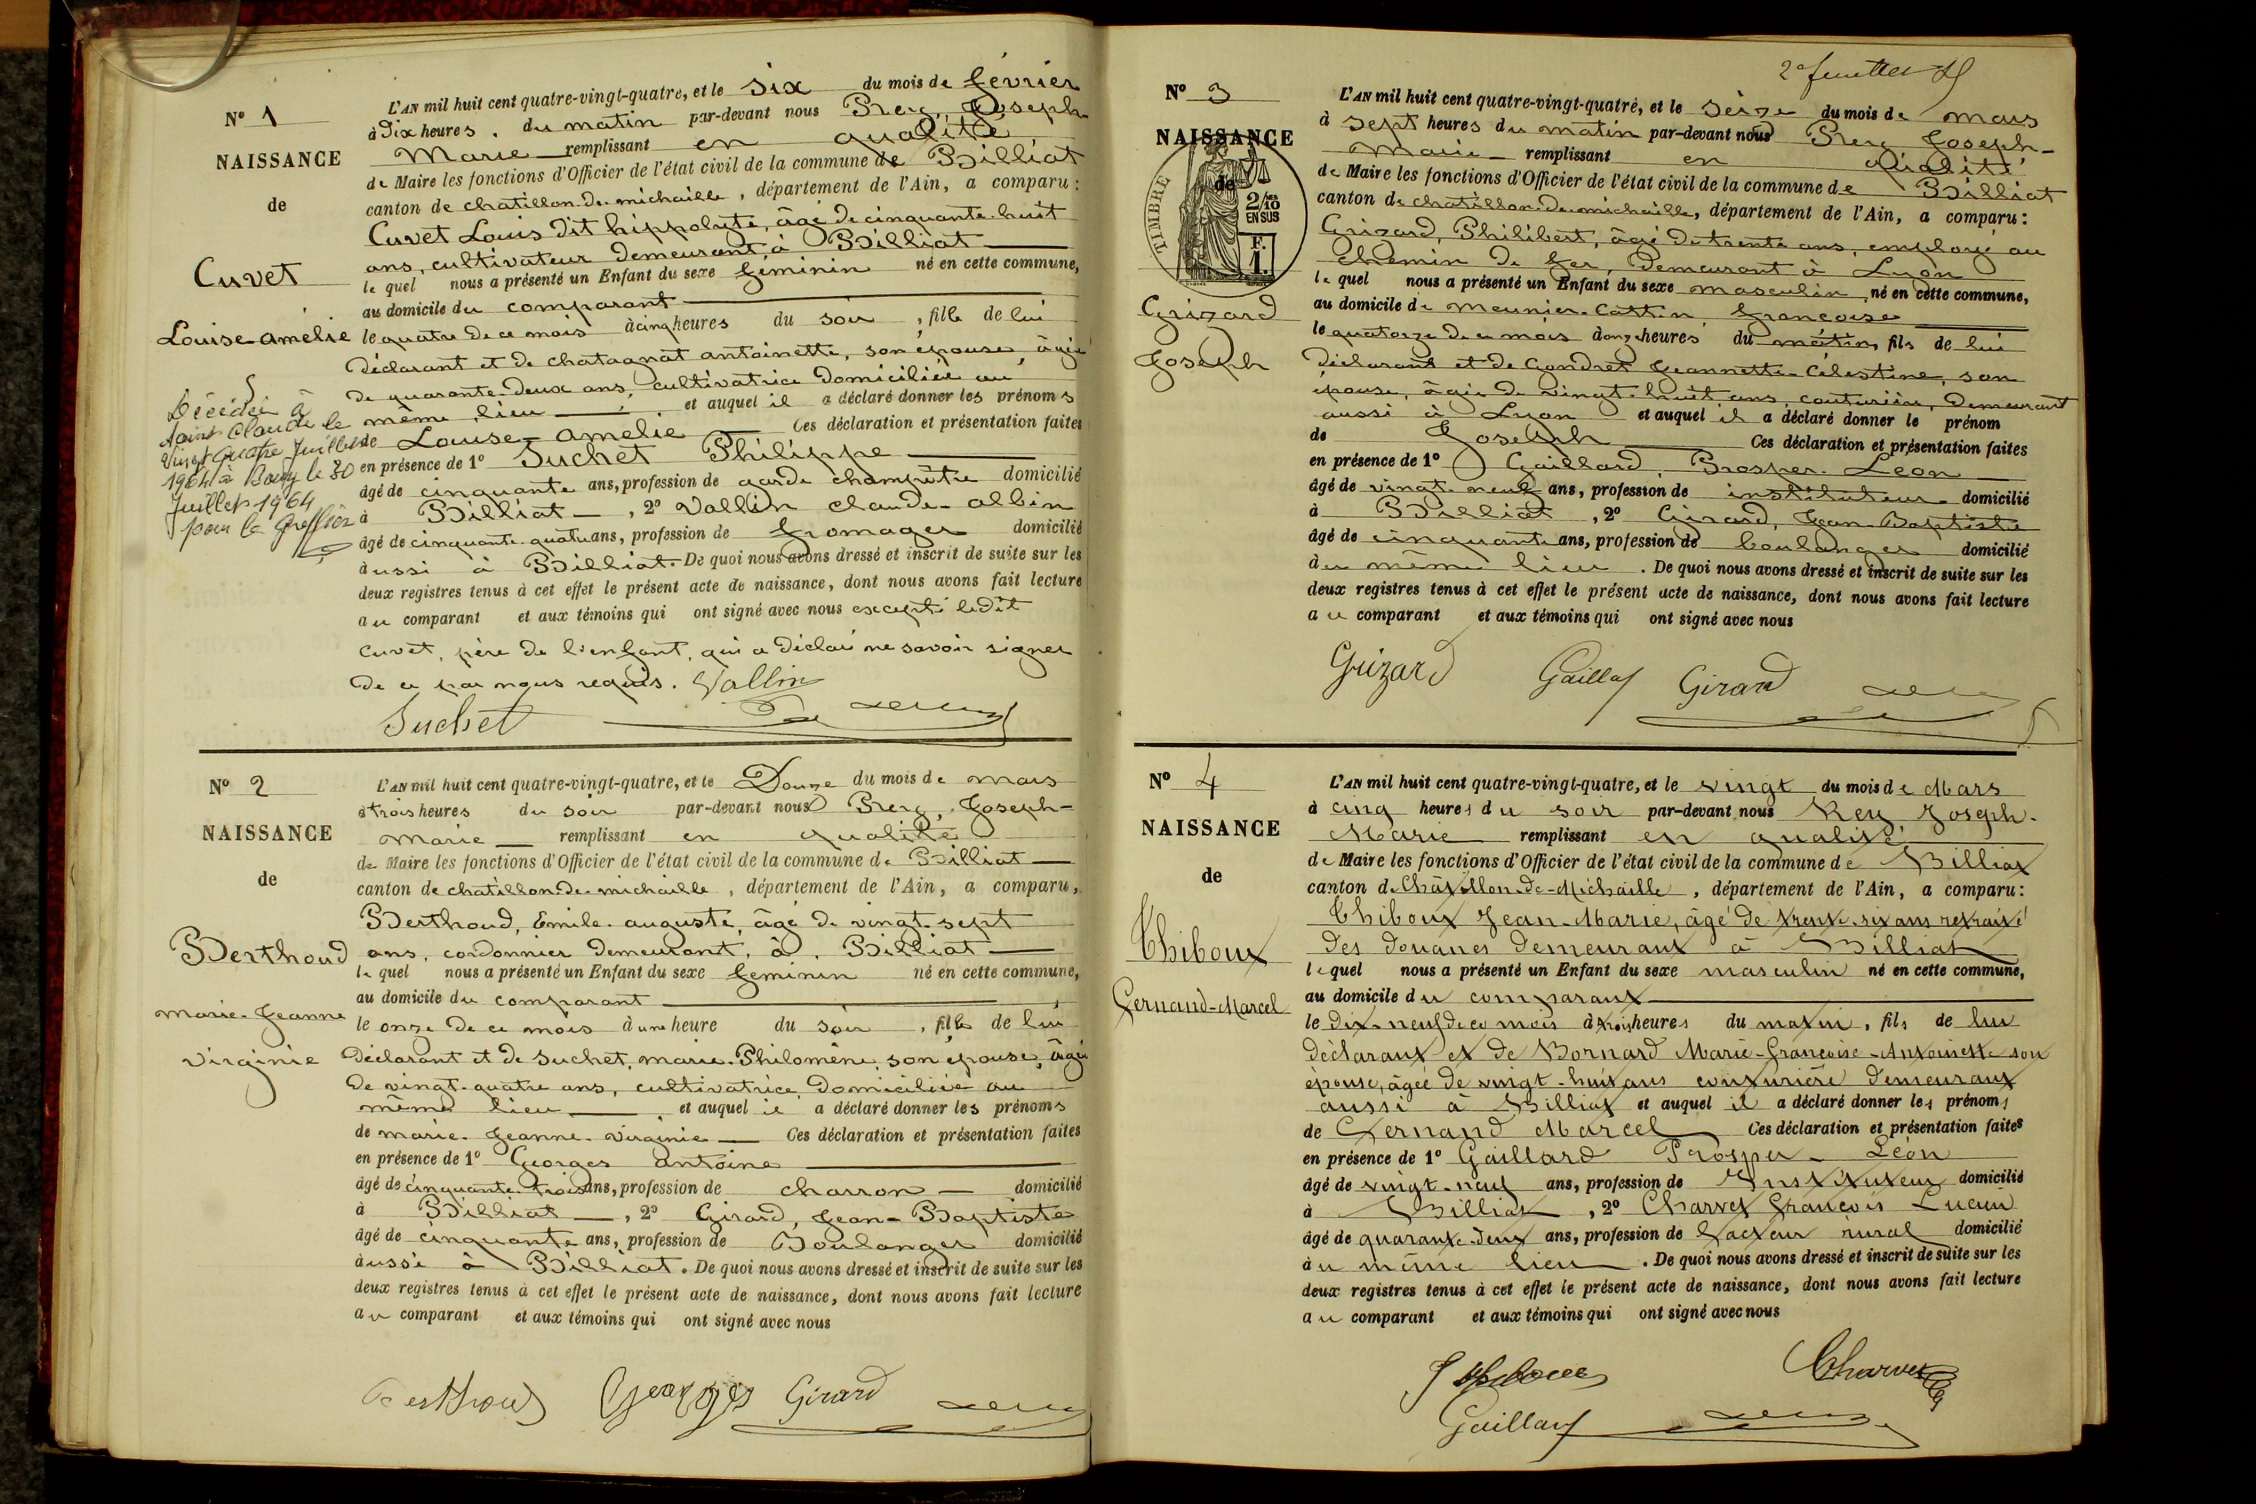 N° 1
NAISSANCE
de
Cuvet
Louise-Amélie
Décédée à
Saint Claude le
vingt quatre Juillet
1964 à Bourg le 30
Juillet 1964
pour le Greffier
L'AN mil huit cent quatre-vingt-quatre, et le six du mois de février
à dix heures du matin par-devant nous Rey, Joseph-
Marie remplissant en qualité
de Maire les fonctions d'Officier de l'état civil de la commune de Billiat
canton de chatillon-de-michaille, département de l'Ain, a comparu:
Cuvet Louis dit hippolyte, âgé de cinquante-huit
ans, cultivateur demeurant, à Billiat
lequel nous a présenté un Enfant du sexe féminin né en cette commune,
au domicile du comparant
le quatre de ce mois à cinq heures du soir, fille de lui
déclarant et de chatagnat antoinette, son épouse, âgée
de quarante-deux ans, cultivatrice domiciliée au
même lieu, et auquel il a déclaré donner les prénoms
de Louise-amélie Ces déclaration et présentation faites
en présence de 1° Suchet Philippe
âgé de cinquante ans, profession de garde champêtre domicilié
à Billiat, 2° Vallin claude-albin
âgé de cinquante-quatre ans, profession de fromager domicilié
aussi à Billiat. De quoi nous avons dressé et inscrit de suite sur les
deux registres tenus à cet effet le présent acte de naissance, dont nous avons fait lecture
au comparant et aux témoins qui ont signé avec nous excepté ledit
cuvet, père de l'enfant, qui a déclaré ne savoir signer
de ce par nous requis. Vallin
Suchet
N° 2
NAISSANCE
de
Berthoud
marie-Jeanne
virginie
L'AN mil huit cent quatre-vingt-quatre, et le Douze du mois de mars
à trois heures du soir par-devant nous Rey, Joseph-
marie remplissant en qualité
de Maire les fonctions d'Officier de l'état civil de la commune de Billiat
canton de chatillon-de-michaille, département de l'Ain, a comparu,
Berthoud, Emile-auguste, âgé de vingt-sept
ans, cordonnier demeurant, à Billiat
lequel nous a présenté un Enfant du sexe féminin né en cette commune,
au domicile du comparant
le onze de ce mois à une heure du soir, fille de lui
déclarant et de Suchet, marie-Philomène, son épouse, âgée
de vingt-quatre ans, cultivatrice, domiciliée au
même lieu, et auquel il a déclaré donner les prénoms
de marie-Jeanne-virginie Ces déclaration et présentation faites
en présence de 1° Georges antoine
âgé de cinquante-trois ans, profession de charron domicilié
à Billiat, 2° Girard, Jean-Baptiste
âgé de cinquante ans, profession de Boulanger domicilié
aussi à Billiat. De quoi nous avons dressé et inscrit de suite sur les
deux registres tenus à cet effet le présent acte de naissance, dont nous avons fait lecture
au comparant et aux témoins qui ont signé avec nous
Berthoud Georges Girard
2e feuillet
N° 3
NAISSANCE
de
TIMBRE
2/10
EN SUS
F.
1.
Grizard
Joseph
L'AN mil huit cent quatre-vingt-quatre, et le seize du mois de mars
à sept heures du matin par-devant nous Rey Joseph-
Marie remplissant en qualité
de Maire les fonctions d'Officier de l'état civil de la commune de Billiat
canton de chatillon-de-michaille, département de l'Ain, a comparu:
Grizard, Philibert, âgé de trente ans, employé au
chemin de fer, demeurant à Lyon
lequel nous a présenté un Enfant du sexe masculin, né en cette commune,
au domicile de meunier-Cattin françoise
le quatorze de ce mois à onze heures du matin, fils de lui
déclarant et de Gondret Jeannette-Célestine, son
épouse, âgée de vingt-huit ans, couturière, demeurant
aussi à Lyon et auquel il a déclaré donner le prénom
de Joseph Ces déclaration et présentation faites
en présence de 1° Gaillard, Prosper-Léon
âgé de vingt-neuf ans, profession de instituteur domicilié
à Billiat, 2° Girard, Jean-Baptiste
âgé de cinquante ans, profession de boulanger domicilié
au même lieu. De quoi nous avons dressé et inscrit de suite sur les
deux registres tenus à cet effet le présent acte de naissance, dont nous avons fait lecture
au comparant et aux témoins qui ont signé avec nous
Grizard Gaillard Girard
N° 4
NAISSANCE
de
Thiboux
Fernand-Marcel
L'AN mil huit cent quatre-vingt-quatre, et le vingt du mois de Mars
à cinq heures du soir par-devant nous Rey Joseph-
Marie remplissant en qualité
de Maire les fonctions d'Officier de l'état civil de la commune de Billiat
canton de Châtillon-de-Michaille, département de l'Ain, a comparu:
Thiboux Jean-Marie, âgé de trente-six ans retraité
des douanes demeurant à Billiat
lequel nous a présenté un Enfant du sexe masculin né en cette commune,
au domicile du comparant
le dix-neuf de ce mois à trois heures du matin, fils de lui
déclarant et de Bornard Marie-Françoise-Antoinette son
épouse, âgée de vingt-huit ans couturière demeurant
aussi à Billiat et auquel il a déclaré donner les prénoms
de Fernand Marcel Ces déclaration et présentation faites
en présence de 1° Gaillard Prosper-Léon
âgé de vingt-neuf ans, profession de Instituteur domicilié
à Billiat, 2° Charvet François Lucien
âgé de quarante-deux ans, profession de facteur rural domicilié
au même lieu. De quoi nous avons dressé et inscrit de suite sur les
deux registres tenus à cet effet le présent acte de naissance, dont nous avons fait lecture
au comparant et aux témoins qui ont signé avec nous
Charvet
Gaillard